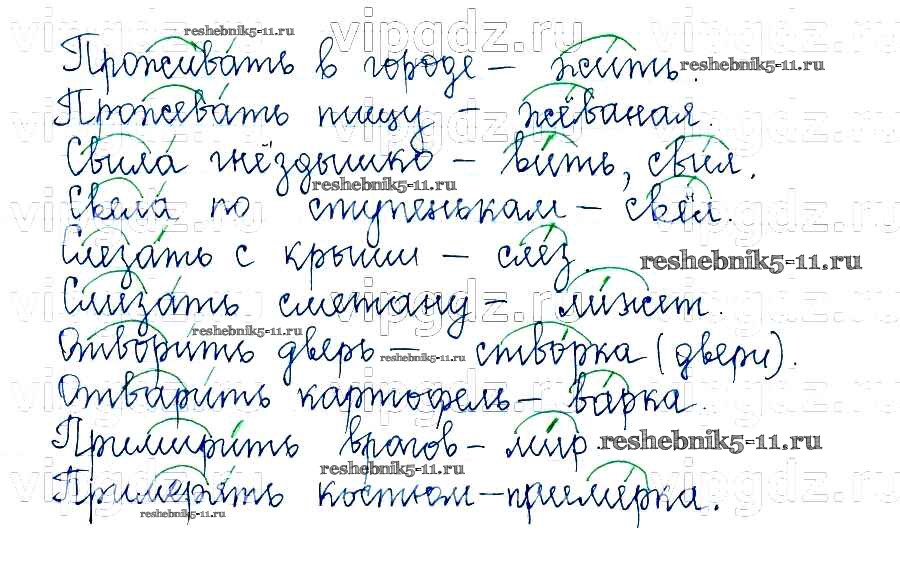 Проживать в городе – жить.
Прожевать пищу – жёваная.
Свила гнёздышко – вить, свил.
Свела по ступенькам – свёл.
Слезать с крыши – слез.
Слизать сметану – лижет.
Отворить дверь – створка (двери).
Отварить картофель – варка.
Примирить врагов – мир
Примерять костюм – примерка.
vipgdz.ru
reshebnik5-11.ru